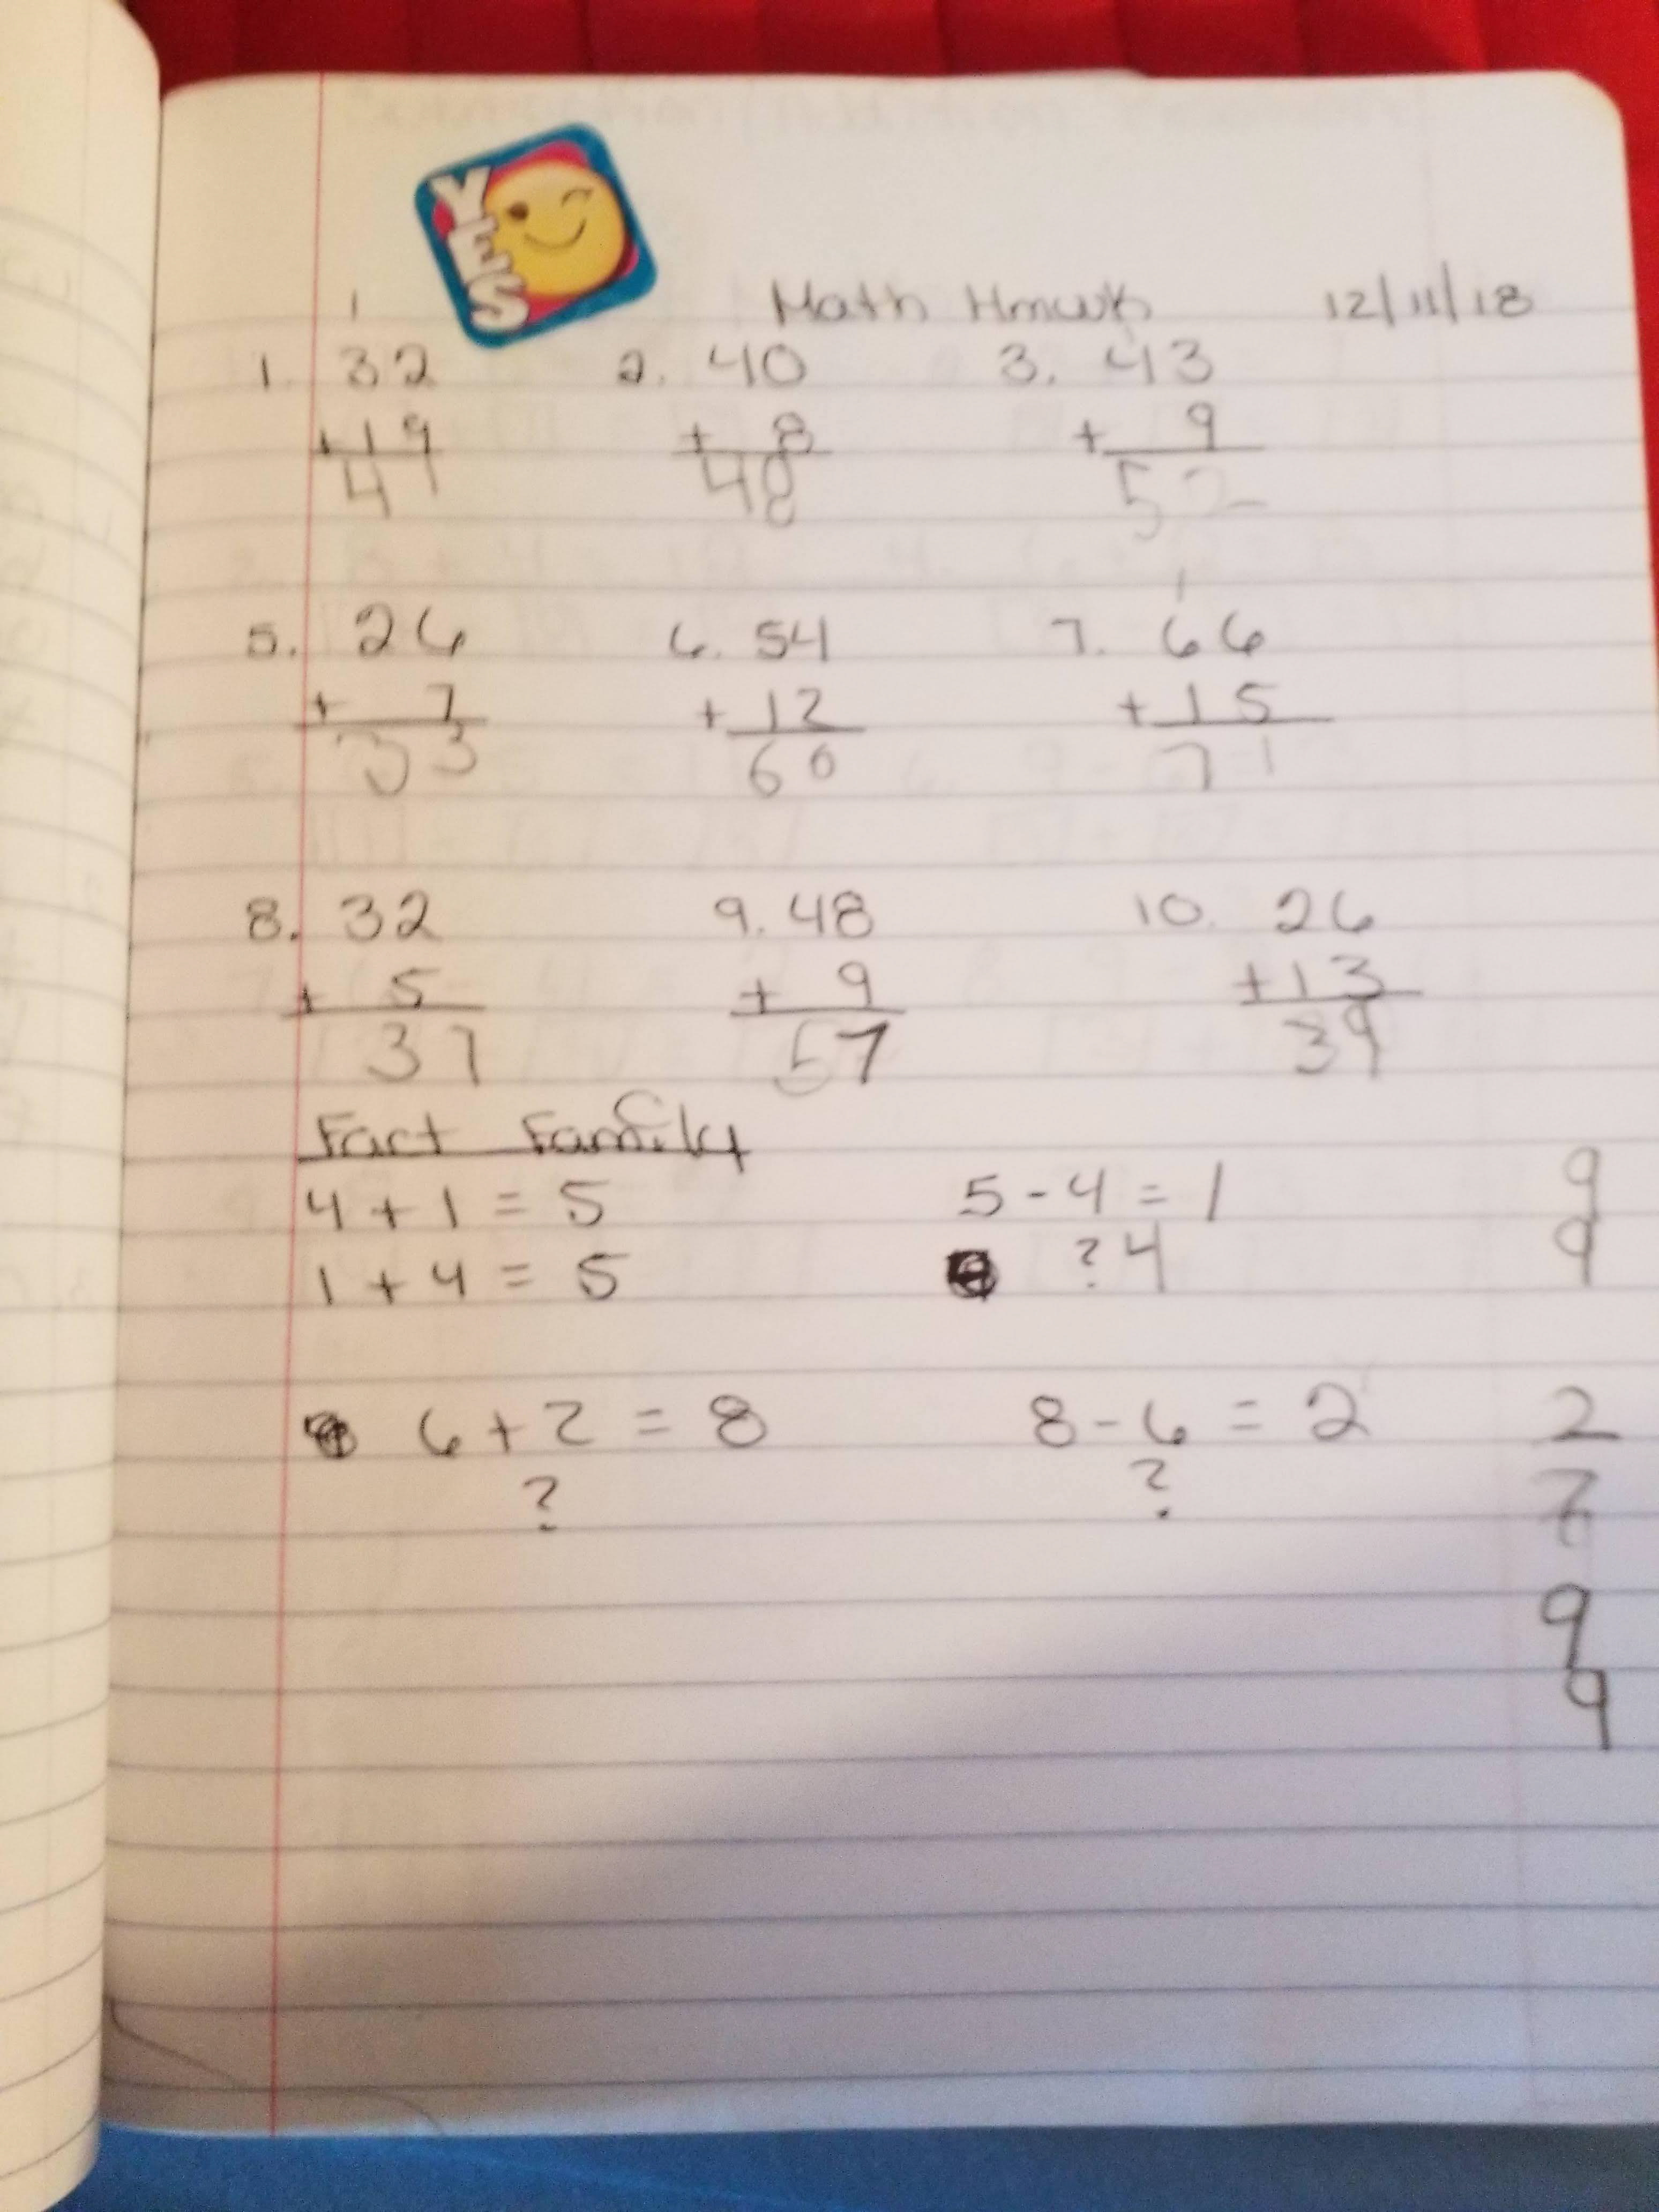 YES
Math Hmwk 12/11/18
1
1. 32 2. 40 3. 43
+19 + 8 + 9
41 48 52
1
5. 26 6. 54 7. 66
+ 7 + 12 + 15
33 66 71
8. 32 9. 48 10. 26
+ 5 + 9 +13
37 57 39
Fact Family
4 + 1 = 5 5 - 4 = 1 9
1 + 4 = 5 ? 4 9
6 + 2 = 8 8 - 6 = 2 2
? ? 2
9
9